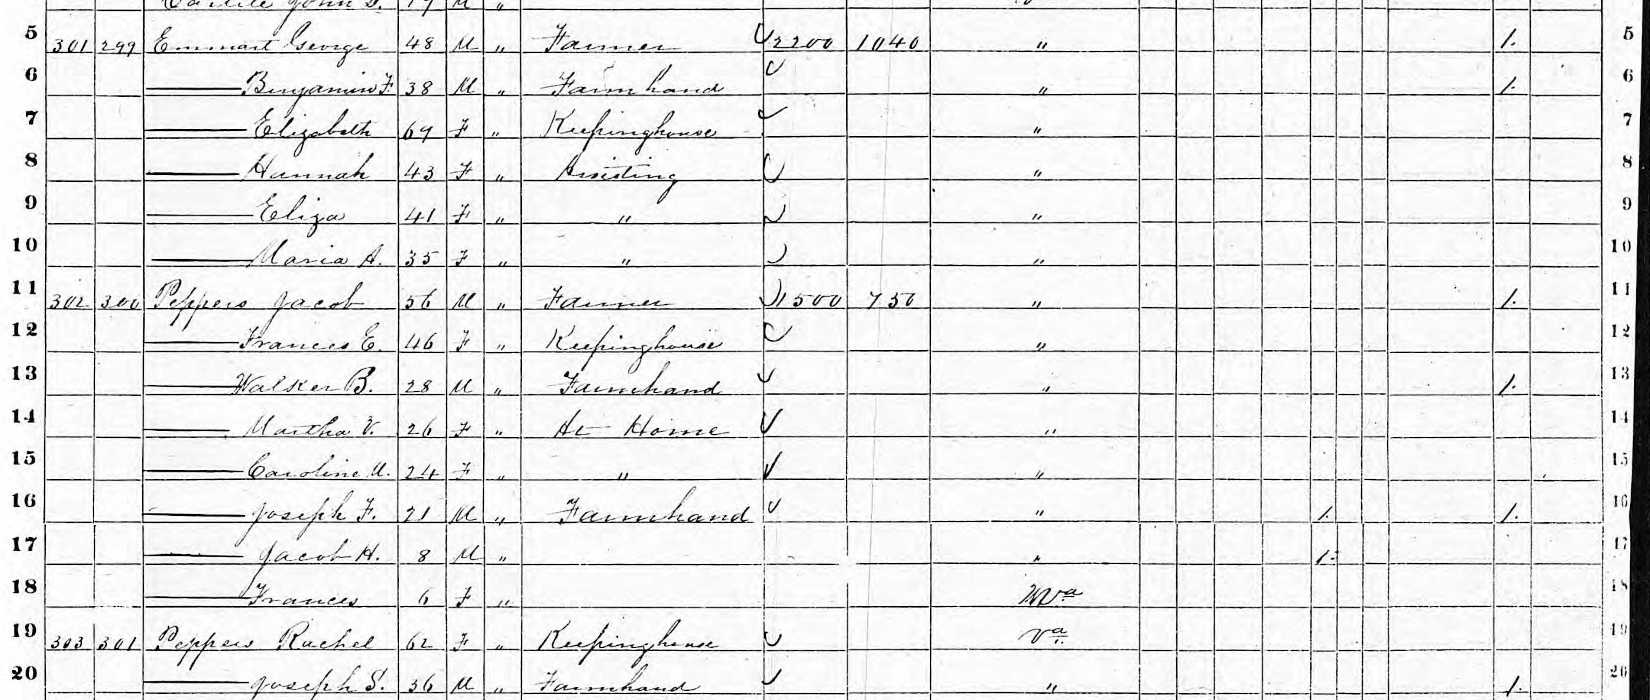 Carlile John S. 19 M "
5 301 299 Emmart George 48 M " Farmer 2200 1040 " 1. 5
6 —— Benjamin F 38 M " Farm hand " 1. 6
7 —— Elizabeth 69 F " Keepinghouse " 7
8 —— Hannah 43 F " Assisting " 8
9 —— Eliza 41 F " " " 9
10 —— Maria A. 35 F " " " 10
11 302 300 Peppers Jacob 56 M " Farmer 1500 750 " 1. 11
12 —— Frances E. 46 F " Keepinghouse " 12
13 —— Walker B. 28 M " Farmhand " 1. 13
14 —— Martha V. 26 F " At Home " 14
15 —— Caroline M. 24 F " " " 15
16 —— Joseph F. 21 M " Farmhand " 1. 1. 16
17 —— Jacob H. 8 M " " 1. 17
18 —— Frances 6 F " W Va 18
19 303 301 Peppers Rachel 62 F " Keepinghouse Va 19
20 —— Joseph S. 36 M " Farmhand " 1. 20